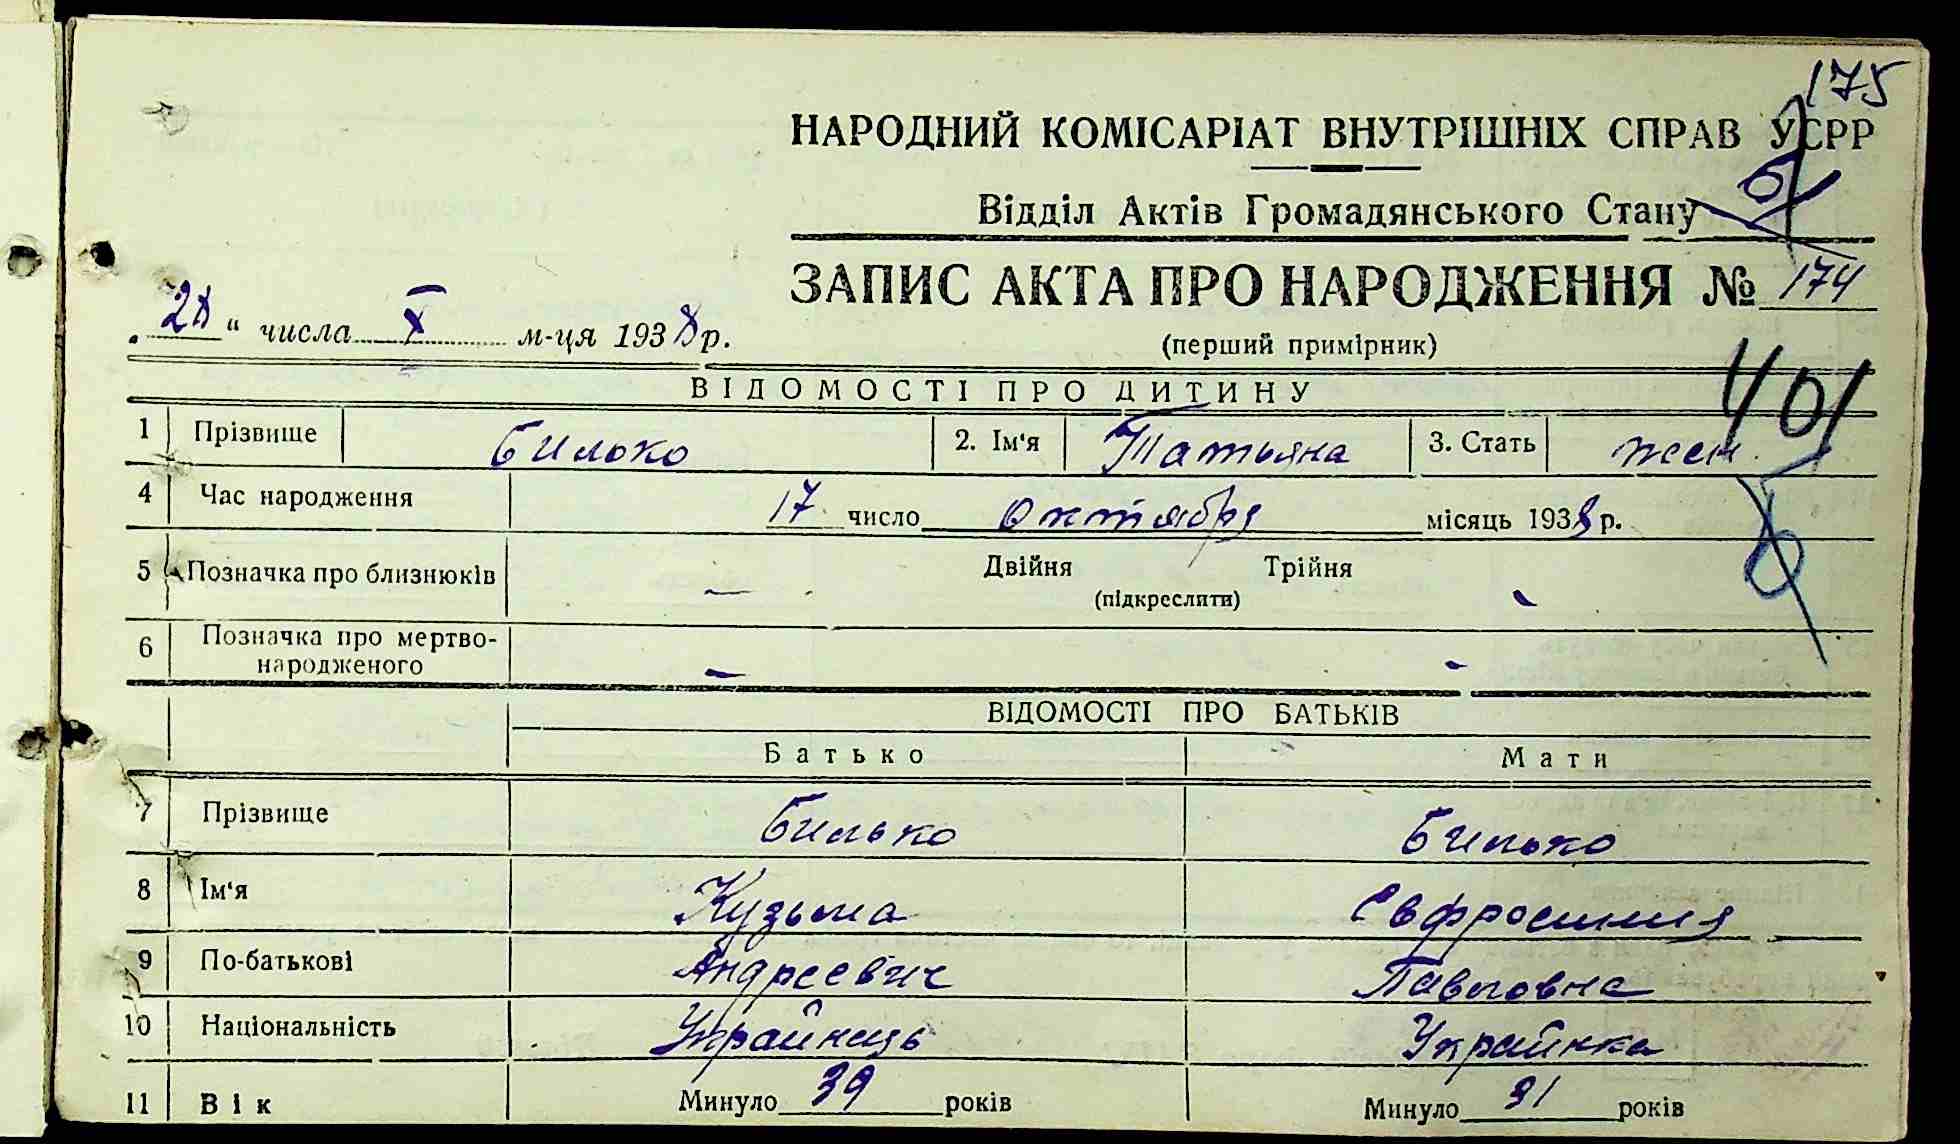 175
НАРОДНИЙ КОМІСАРІАТ ВНУТРІШНІХ СПРАВ УСРР
Відділ Актів Громадянського Стану
ЗАПИС АКТА ПРО НАРОДЖЕННЯ № 174
„28“ числа X м-ця 1938 р.
(перший примірник)
401
ВІДОМОСТІ ПРО ДИТИНУ
1 Прізвище Билько 2. Ім'я Татьяна 3. Стать жен.
4 Час народження 17 число октября місяць 1938 р.
5 Позначка про близнюків — Двійня Трійня -
(підкреслити)
6 Позначка про мертво-
народженого — -
ВІДОМОСТІ ПРО БАТЬКІВ
Батько Мати
7 Прізвище Билько Билько
8 Ім'я Кузьма Евфросиния
9 По-батькові Андреевич Павловна
10 Національність Украйнець Украйнка
11 Вік Минуло 39 років Минуло 31 років